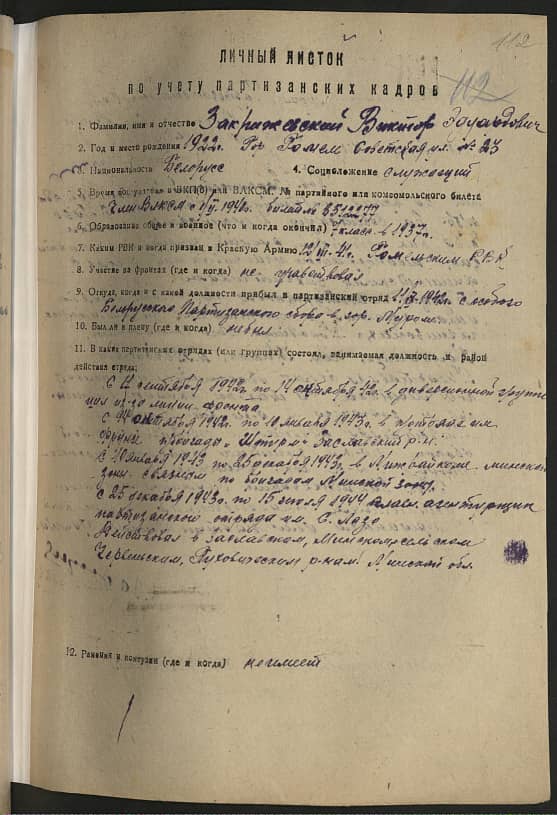 112
ЛИЧНЫЙ ЛИСТОК
по учету партизанских кадров
112
1. Фамилия, имя и отчество Закржевский Виктор
2. Год и место рождения 1922 г. Гор Гомель Советская ул. № 23
3. Национальность Белорусс 4. Соцположение служащий
5. Время вступления в ВКП(б) или ВЛКСМ, № партийного или комсомольского билета
Член ВЛКСМ с
6. Образование общее и военное (что и когда окончил) 7 класс в 1937 г.
7. Каким РВК и когда призван в Красную Армию Гомельским Р.В.К
8. Участие на фронтах (где и когда) не участвовал
9. Откуда, когда и с какой должности прибыл в партизанский отряд с особого
Белорусского Партизанского сбора в гор. Муром.
10. Был ли в плену (где и когда) не был
11. В каких партизанских отрядах (или группах) состоял, занимаемая должность и район
действия отряда:
С 4 сентября 1942 г. по 14 октября 42 г. в диверсионной группе
линии фронта
С 14 октября 1942 г. по 10 января 1943 г. в отряде им
Фрунзе бригада „Штурм" Заславский р-н.
С 10 января 1943 по 25 декабря 1943 г. в
связным по бригадам Минской зоны.
С 25 декабря 1943 г. по 15 июля 1944
партизанского отряда им. С. Лазо
Действовал в Заславском, Минском сельском
Червеньским, Пуховическим р-нам. Минской обл.
12. Ранения и контузии (где и когда) не имеет